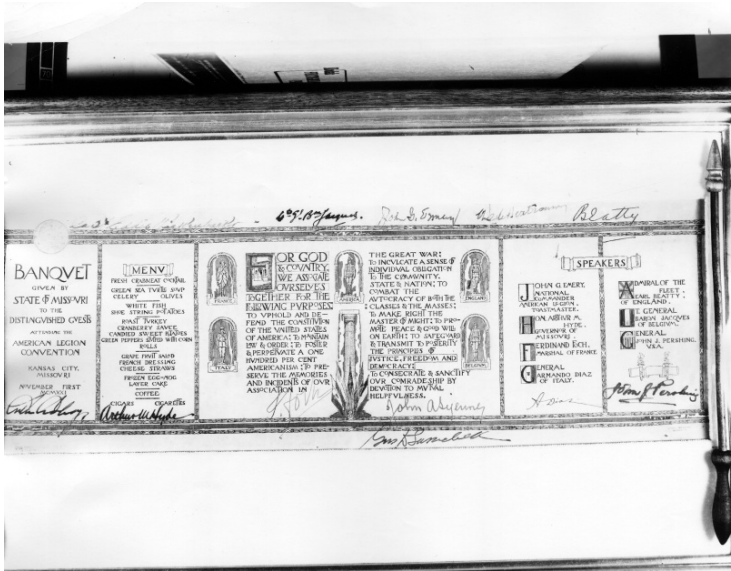 Gal Bon Jacques.
John G. Emery
Beatty
BANQVET
GIVEN BY
STATE OF MISSOVRI
TO THE
DISTINGVISHED GVESTS
ATTENDING THE
AMERICAN LEGION
CONVENTION
KANSAS CITY,
MISSOVRI
NOVEMBER FIRST
MCMXXI
MENV
FRESH CRABMEAT COCKTAIL
GREEN SEA TVRTLE SOVP
CELERY OLIVES
WHITE FISH
SHOE STRING POTATOES
ROAST TVRKEY
CRANBERRY SAVCE
CANDIED SWEET POTATOES
GREEN PEPPERS STVFFED WITH CORN
ROLLS
GRAPE FRVIT SALAD
FRENCH DRESSING
CHEESE STRAWS
FROZEN EGG-NOG
LAYER CAKE
COFFEE
CIGARS CIGARETTES
Arthur M Hyde
FRANCE
ITALY
FOR GOD
& COVNTRY,
WE ASSOCIATE
OVRSELVES
TOGETHER FOR THE
FOLLOWING PVRPOSES:
TO VPHOLD AND DE-
FEND THE CONSTITVTION
OF THE VNITED STATES
OF AMERICA; TO MAINTAIN
LAW & ORDER; TO FOSTER
& PERPETVATE A ONE
HVNDRED PER CENT
AMERICANISM; TO PRE-
SERVE THE MEMORIES
AND INCIDENTS OF OVR
ASSOCIATION IN
AMERICA
THE GREAT WAR;
TO INCVLCATE A SENSE OF
INDIVIDVAL OBLIGATION
TO THE COMMVNITY,
STATE & NATION; TO
COMBAT THE
AVTOCRACY OF BOTH THE
CLASSES & THE MASSES;
TO MAKE RIGHT THE
MASTER OF MIGHT; TO PRO-
MOTE PEACE & GOOD WILL
ON EARTH; TO SAFEGVARD
& TRANSMIT TO POSTERITY
THE PRINCIPLES OF
JVSTICE, FREEDOM AND
DEMOCRACY;
TO CONSECRATE & SANCTIFY
OVR COMRADESHIP BY
DEVOTION TO MVTVAL
HELPFVLNESS.
ENGLAND
BELGIVM
SPEAKERS
JOHN G. EMERY,
NATIONAL
COMMANDER
AMERICAN LEGION,
TOASTMASTER.
HON. ARTHVR M.
HYDE,
GOVERNOR OF
MISSOVRI
FERDINAND FOCH,
MARSHAL OF FRANCE
GENERAL
ARMANDO DIAZ
OF ITALY.
ADMIRAL OF THE
FLEET,
EARL BEATTY,
OF ENGLAND.
LT. GENERAL
BARON JACQVES
OF BELGIVM.
GENERAL
JOHN J. PERSHING,
V.S.A.
FFoch
A Diaz
John J. Pershing